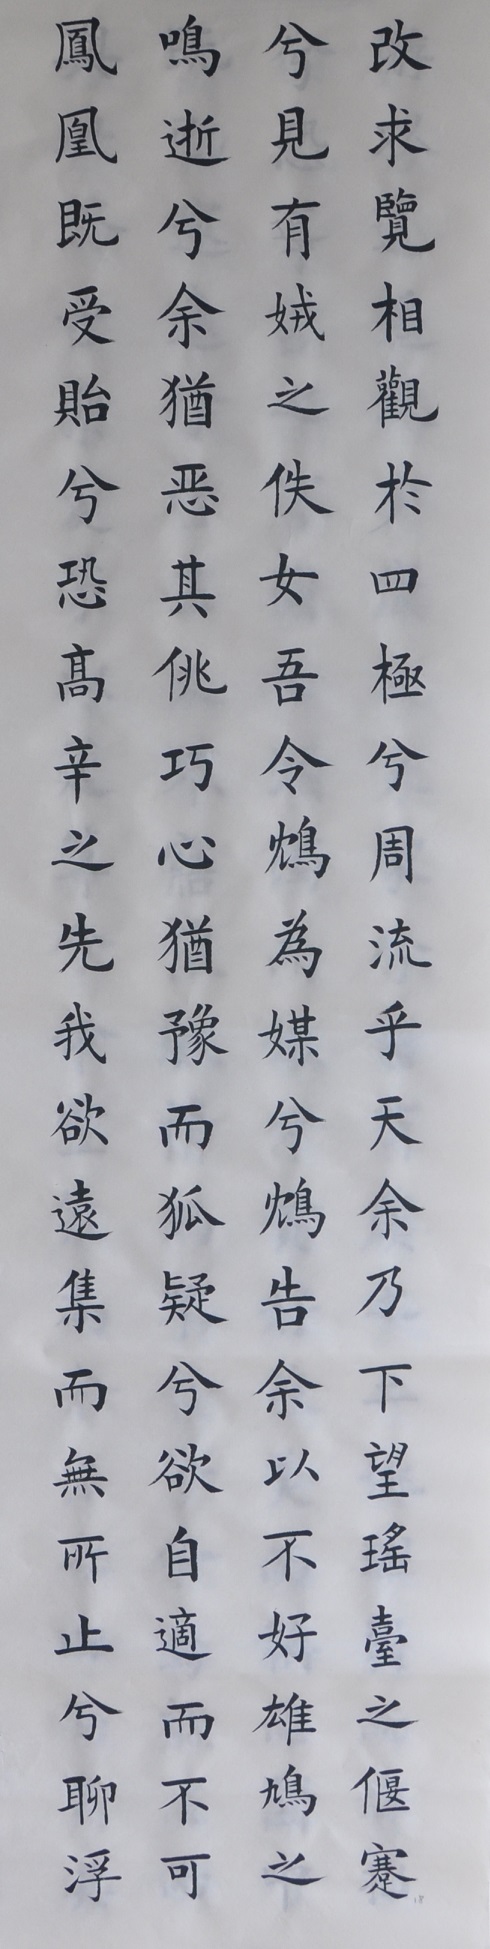 改求覽相觀於四極兮周流乎天余乃下望瑤臺之偃蹇
兮見有娀之佚女吾令鴆為媒兮鴆告余以不好雄鳩之
鳴逝兮余猶恶其佻巧心猶豫而狐疑兮欲自適而不可
鳳凰既受貽兮恐髙辛之先我欲遠集而無所止兮聊浮